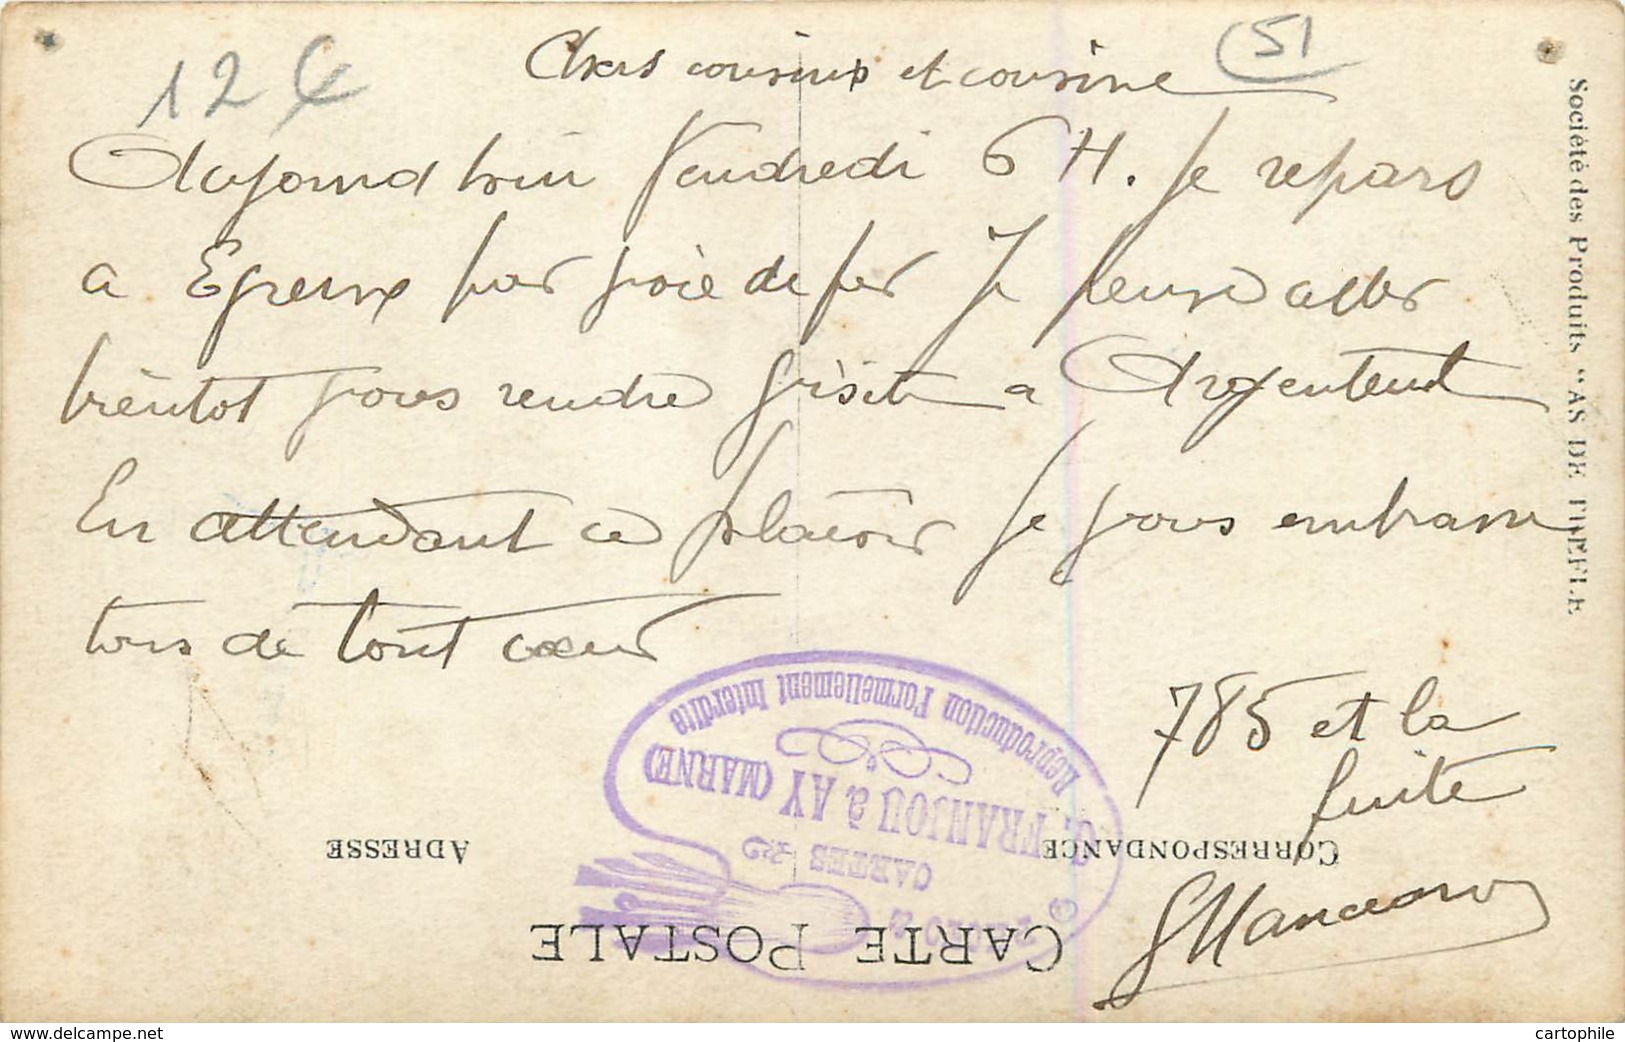 12 €
51
Chers cousins et cousine
Aujourd huit Vendredi 6 H. Je repars
a Epernx par voie de fer Je pense aller
bientot vous rendre visite a Argenteuil
En attendant ce plaisir je vous embrasse
tous de tout cœur
785 et la
suite
Société des Produits "AS DE TREFLE
Reproduction Formellement Interdite
FRANJOU à AY (MARNE)
CARTES
CORRESPONDANCE
ADRESSE
CARTE POSTALE
https://www.delcampe.net
cartophile